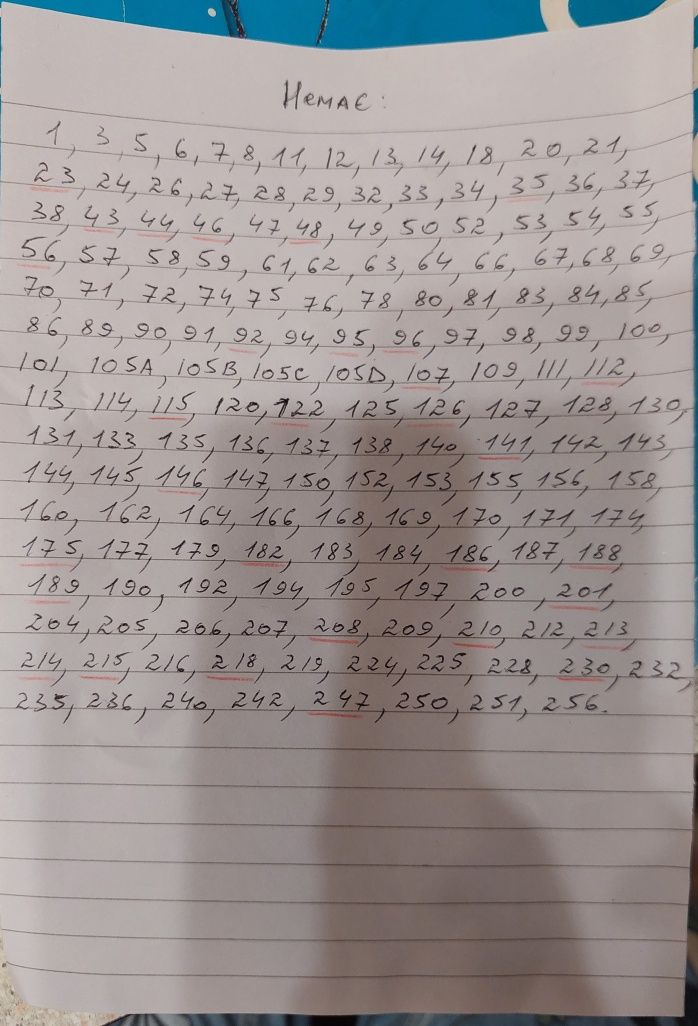 Немає:
1, 3, 5, 6, 7, 8, 11, 12, 13, 14, 18, 20, 21,
23, 24, 26, 27, 28, 29, 32, 33, 34, 35, 36, 37,
38, 43, 44, 46, 47, 48, 49, 50, 52, 53, 54, 55,
56, 57, 58, 59, 61, 62, 63, 64, 66, 67, 68, 69,
70, 71, 72, 74, 75, 76, 78, 80, 81, 83, 84, 85,
86, 89, 90, 91, 92, 94, 95, 96, 97, 98, 99, 100,
101, 105A, 105B, 105C, 105D, 107, 109, 111, 112,
113, 114, 115, 120, 122, 125, 126, 127, 128, 130,
131, 133, 135, 136, 137, 138, 140, 141, 142, 143,
144, 145, 146, 147, 150, 152, 153, 155, 156, 158,
160, 162, 164, 166, 168, 169, 170, 171, 174,
175, 177, 179, 182, 183, 184, 186, 187, 188,
189, 190, 192, 194, 195, 197, 200, 201,
204, 205, 206, 207, 208, 209, 210, 212, 213,
214, 215, 216, 218, 219, 224, 225, 228, 230, 232,
235, 236, 240, 242, 247, 250, 251, 256.